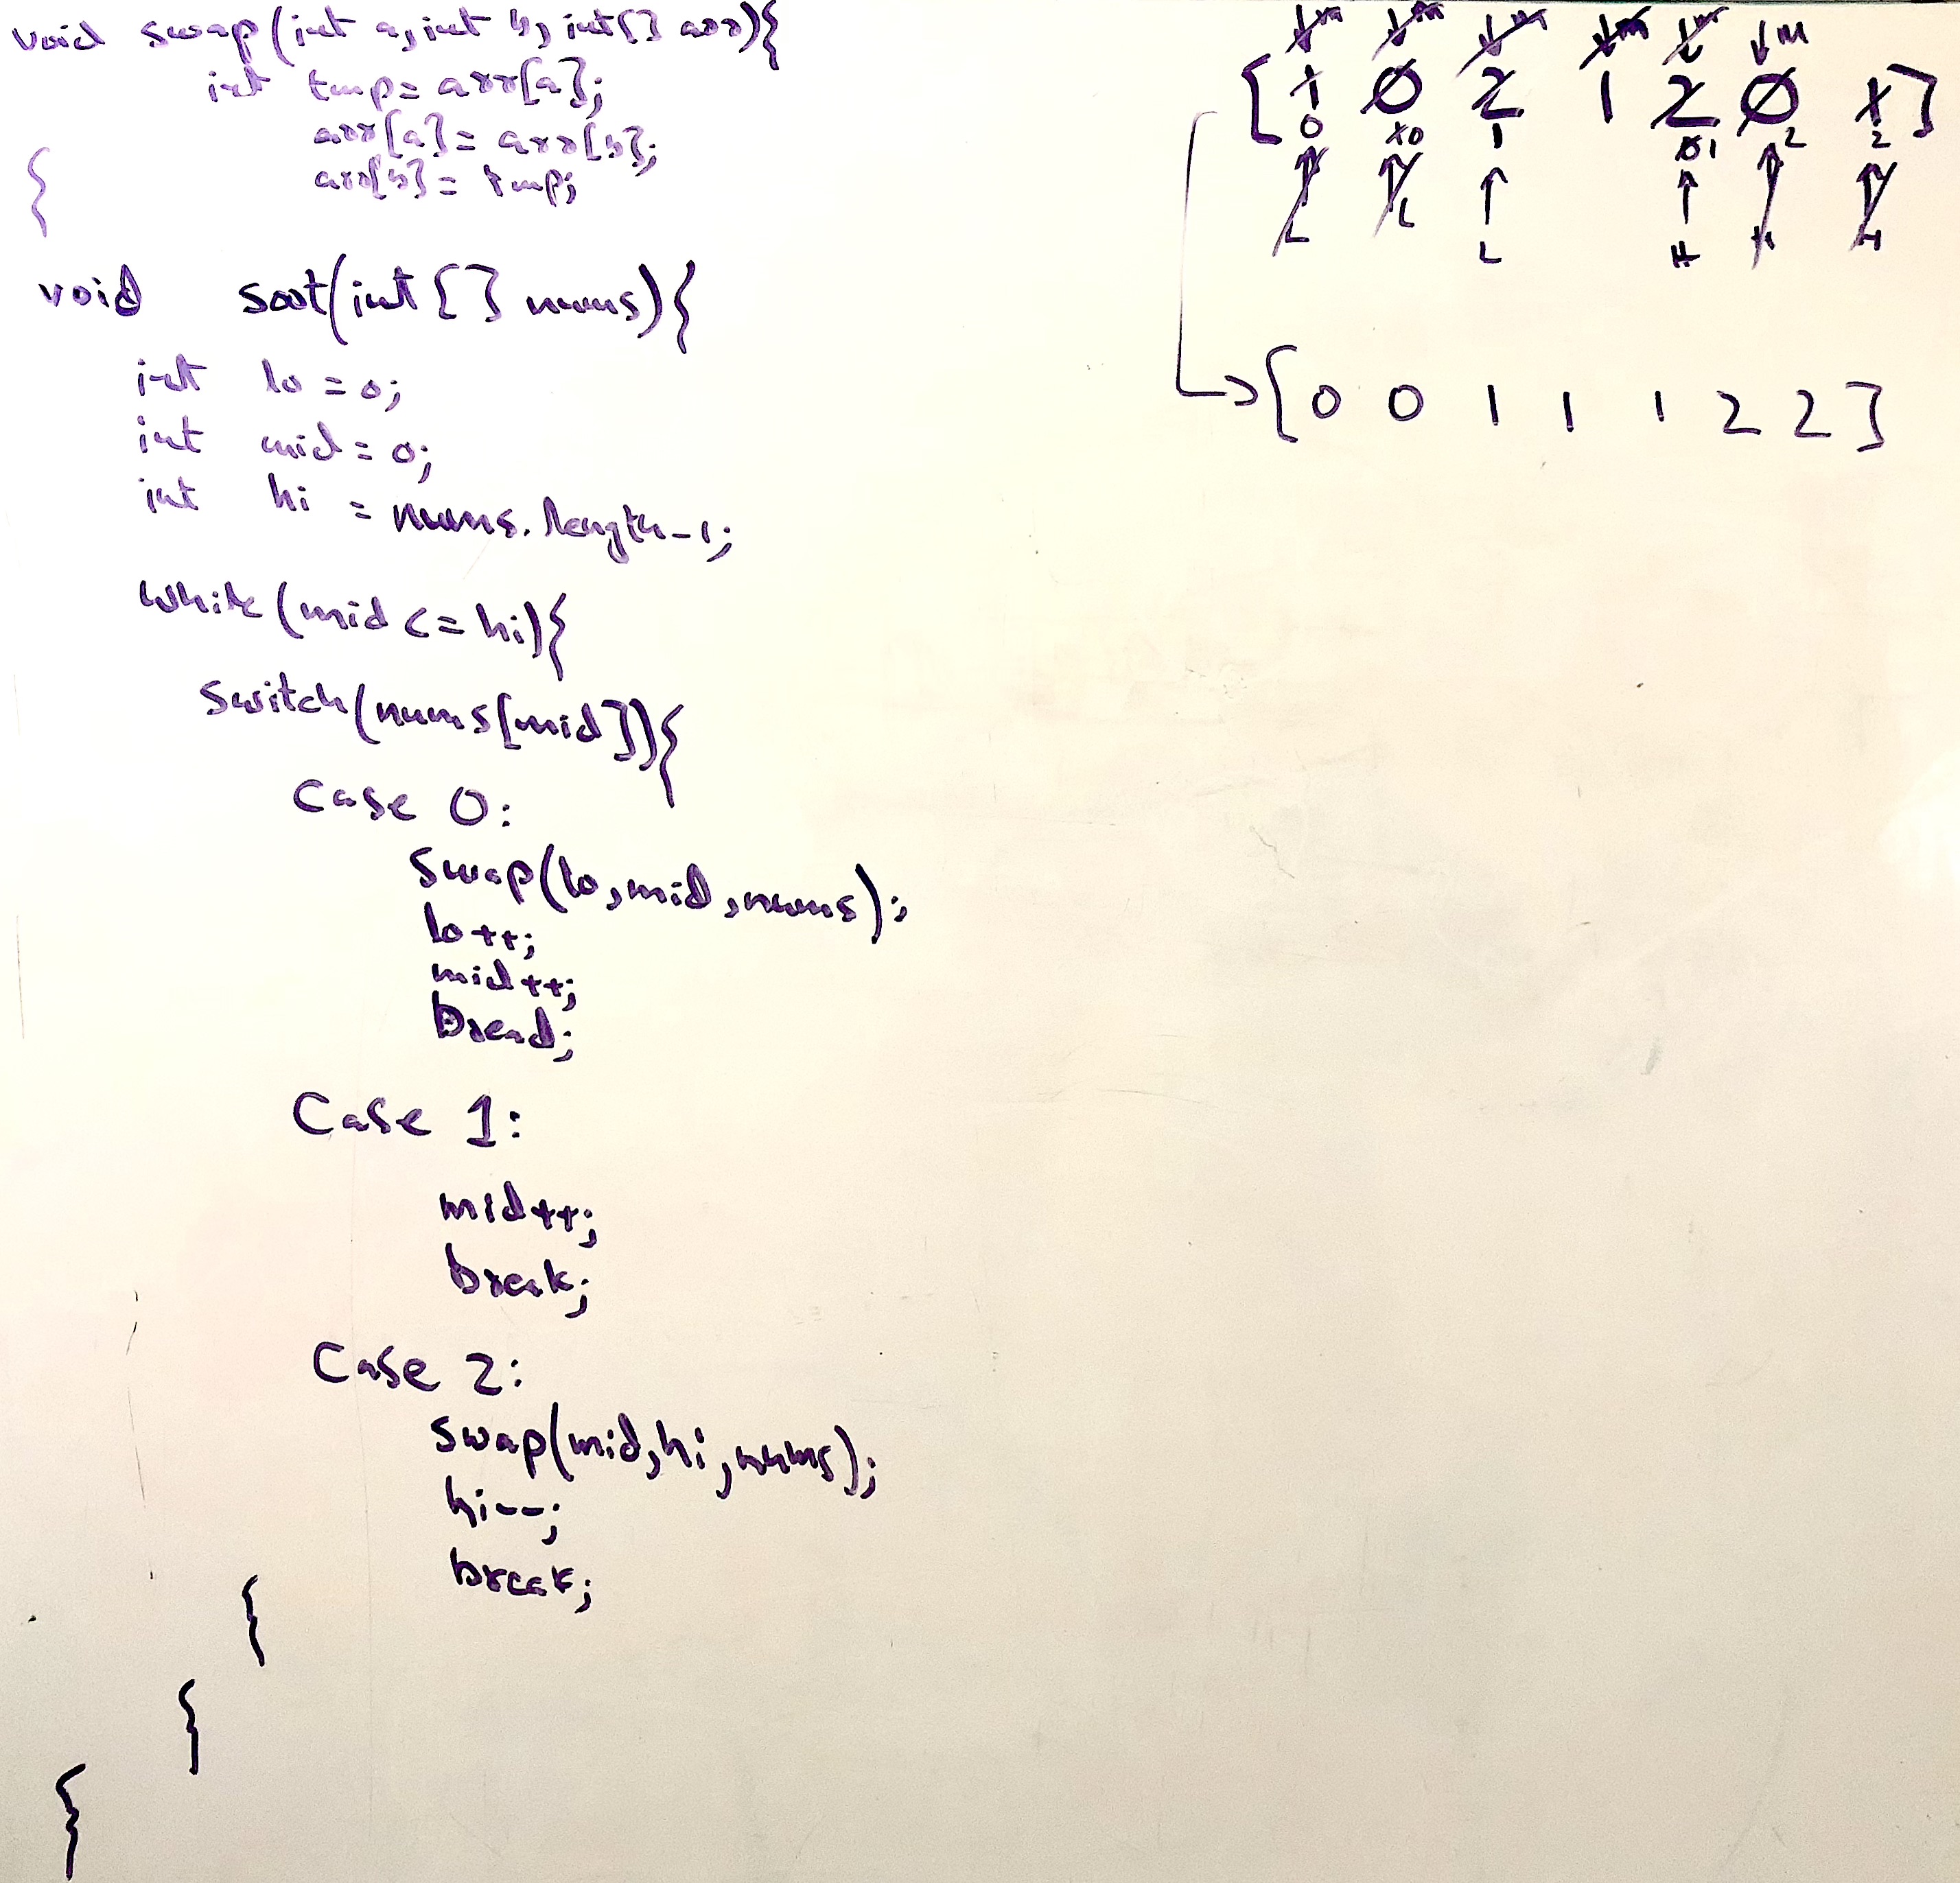 void swap(int a, int b, int[] arr){
int tmp = arr[a];
arr[a] = arr[b];
arr[b] = tmp;
{
void sort(int[] nums){
int lo = 0;
int mid = 0;
int hi = nums.length-1;
while(mid <= hi){
switch(nums[mid]){
case 0:
swap(lo,mid,nums);
lo++;
mid++;
bread;
Case 1:
mid++;
break;
Case 2:
swap(mid,hi,nums);
hi--;
break;
{
{
{
↓m ↓m ↓m ↓m ↓m ↓m
[1 0 2 1 2 0 1]
0 10 1 01 2 2
↑ ↑ ↑ ↑ ↑ ↑
L L L H H H
→[0 0 1 1 1 2 2]